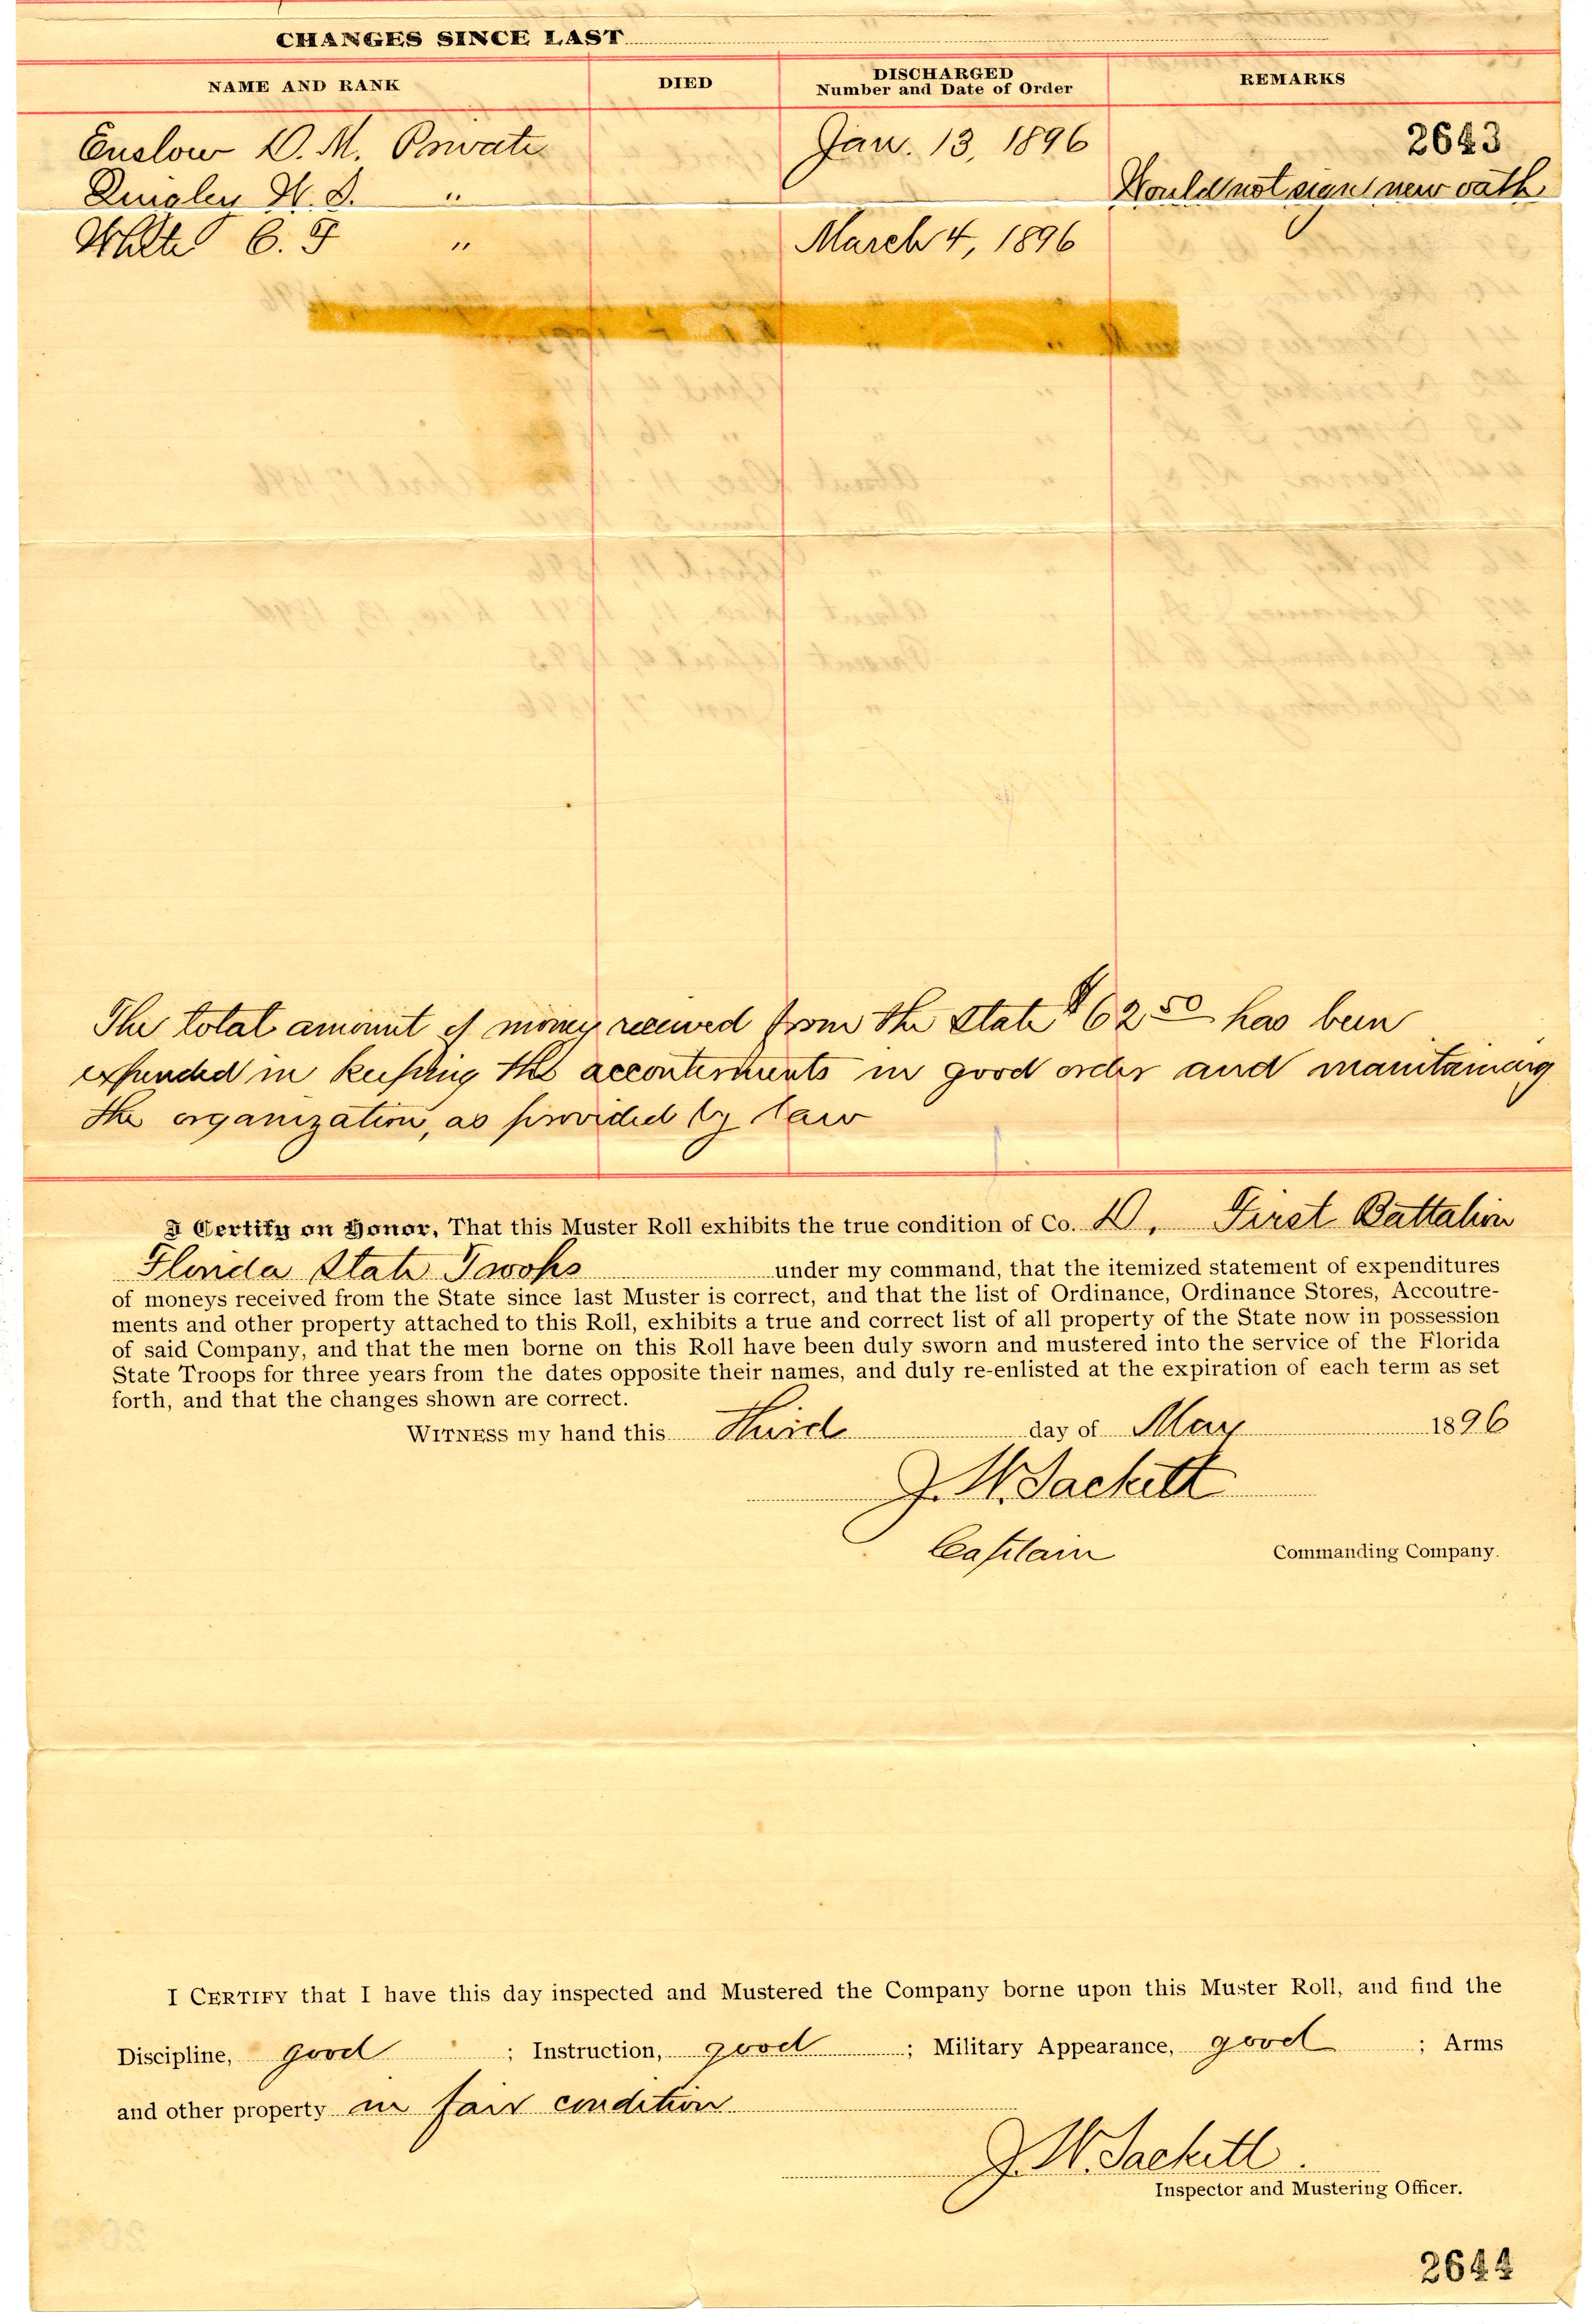 CHANGES SINCE LAST
NAME AND RANK DIED DISCHARGED Number and Date of Order REMARKS
2643
Enslow D. M. Private Jan. 13, 1896
Quigley W. S. " Would not sign new oath
White C. F " March 4, 1896
The total amount of money received from the State $62 50 has been
expended in keeping the accouterments in good order and maintaining
the organization, as provided by law
I Certify on Honor, That this Muster Roll exhibits the true condition of Co. D, First Battalion
Florida State Troops under my command, that the itemized statement of expenditures
of moneys received from the State since last Muster is correct, and that the list of Ordinance, Ordinance Stores, Accoutre-
ments and other property attached to this Roll, exhibits a true and correct list of all property of the State now in possession
of said Company, and that the men borne on this Roll have been duly sworn and mustered into the service of the Florida
State Troops for three years from the dates opposite their names, and duly re-enlisted at the expiration of each term as set
forth, and that the changes shown are correct.
WITNESS my hand this third day of May 1896
J. W. Sackett
Captain Commanding Company.
I CERTIFY that I have this day inspected and Mustered the Company borne upon this Muster Roll, and find the
Discipline, good ; Instruction, good ; Military Appearance, good ; Arms
and other property in fair condition
J. W. Sackett.
Inspector and Mustering Officer.
2644